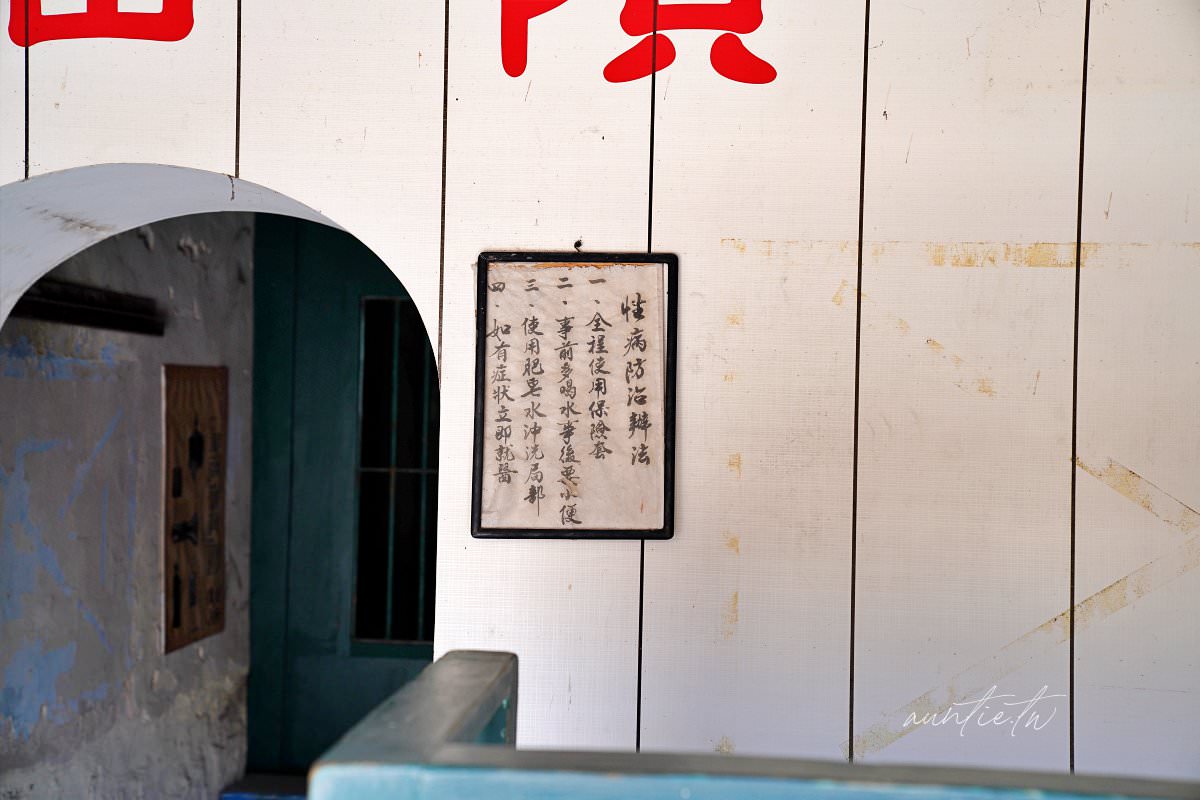 性病防治辦法
一、全程使用保險套
二、事前多喝水事後要小便
三、使用肥皂水沖洗局部
四、如有症狀立即就醫
auntie.tw